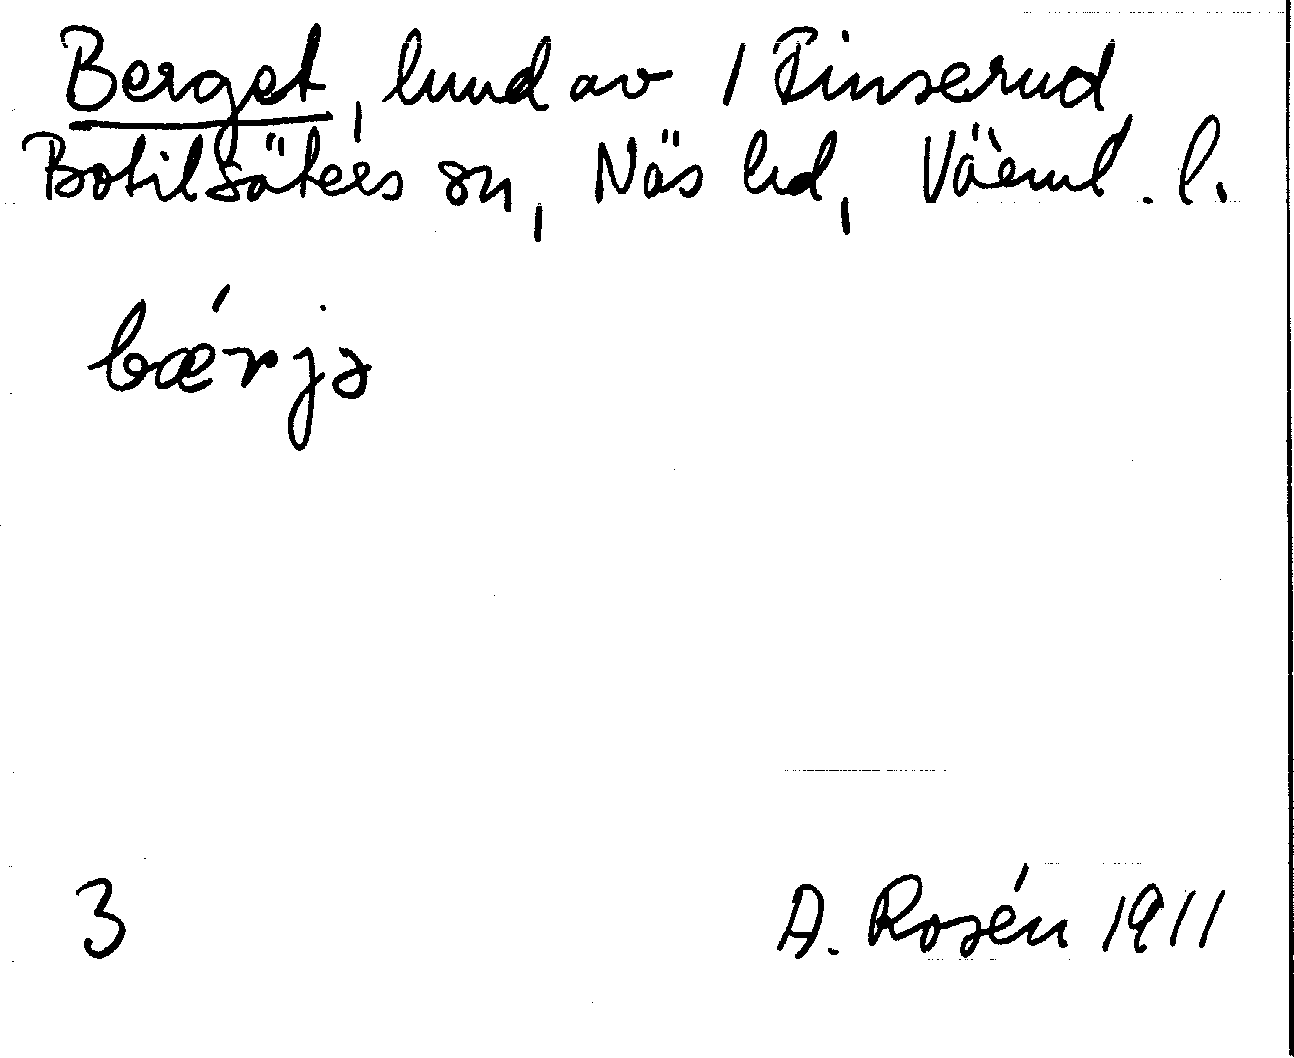 Berget, lund av 1 Finserud
Botilsäters sn, Näs hd, Värml. l.
bǽrjə
3
A. Rosén 1911